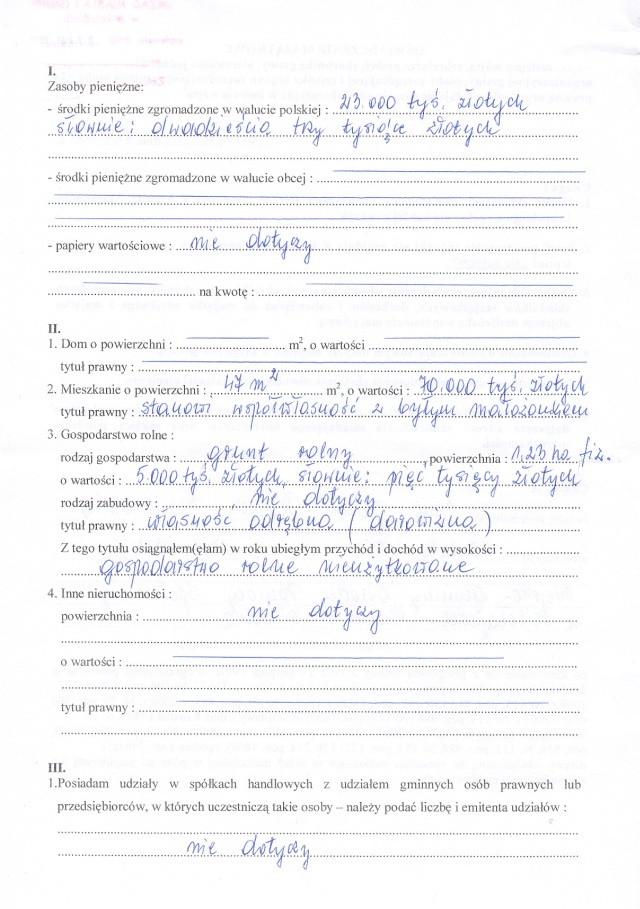 I.
Zasoby pieniężne:
- środki pieniężne zgromadzone w walucie polskiej : 23.000 tyś. złotych
słownie: dwadzieścia trzy tysiące złotych
- środki pieniężne zgromadzone w walucie obcej :
- papiery wartościowe : nie dotyczy
na kwotę :
II.
1. Dom o powierzchni : m², o wartości :
tytuł prawny :
2. Mieszkanie o powierzchni : 47 m² m², o wartości : 70.000 tyś. złotych
tytuł prawny : stanowi współwłasność z byłym małżonkiem
3. Gospodarstwo rolne :
rodzaj gospodarstwa : grunt rolny , powierzchnia : 1,23 ha fiz.
o wartości : 5.000 tyś. złotych, słownie: pięć tysięcy złotych
rodzaj zabudowy : nie dotyczy
tytuł prawny : własność odrębna (darowizna)
Z tego tytułu osiągnąłem(ęłam) w roku ubiegłym przychód i dochód w wysokości :
gospodarstwo rolne nieużytkowane
4. Inne nieruchomości :
powierzchnia : nie dotyczy
o wartości :
tytuł prawny :
III.
1.Posiadam udziały w spółkach handlowych z udziałem gminnych osób prawnych lub
przedsiębiorców, w których uczestniczą takie osoby – należy podać liczbę i emitenta udziałów :
nie dotyczy